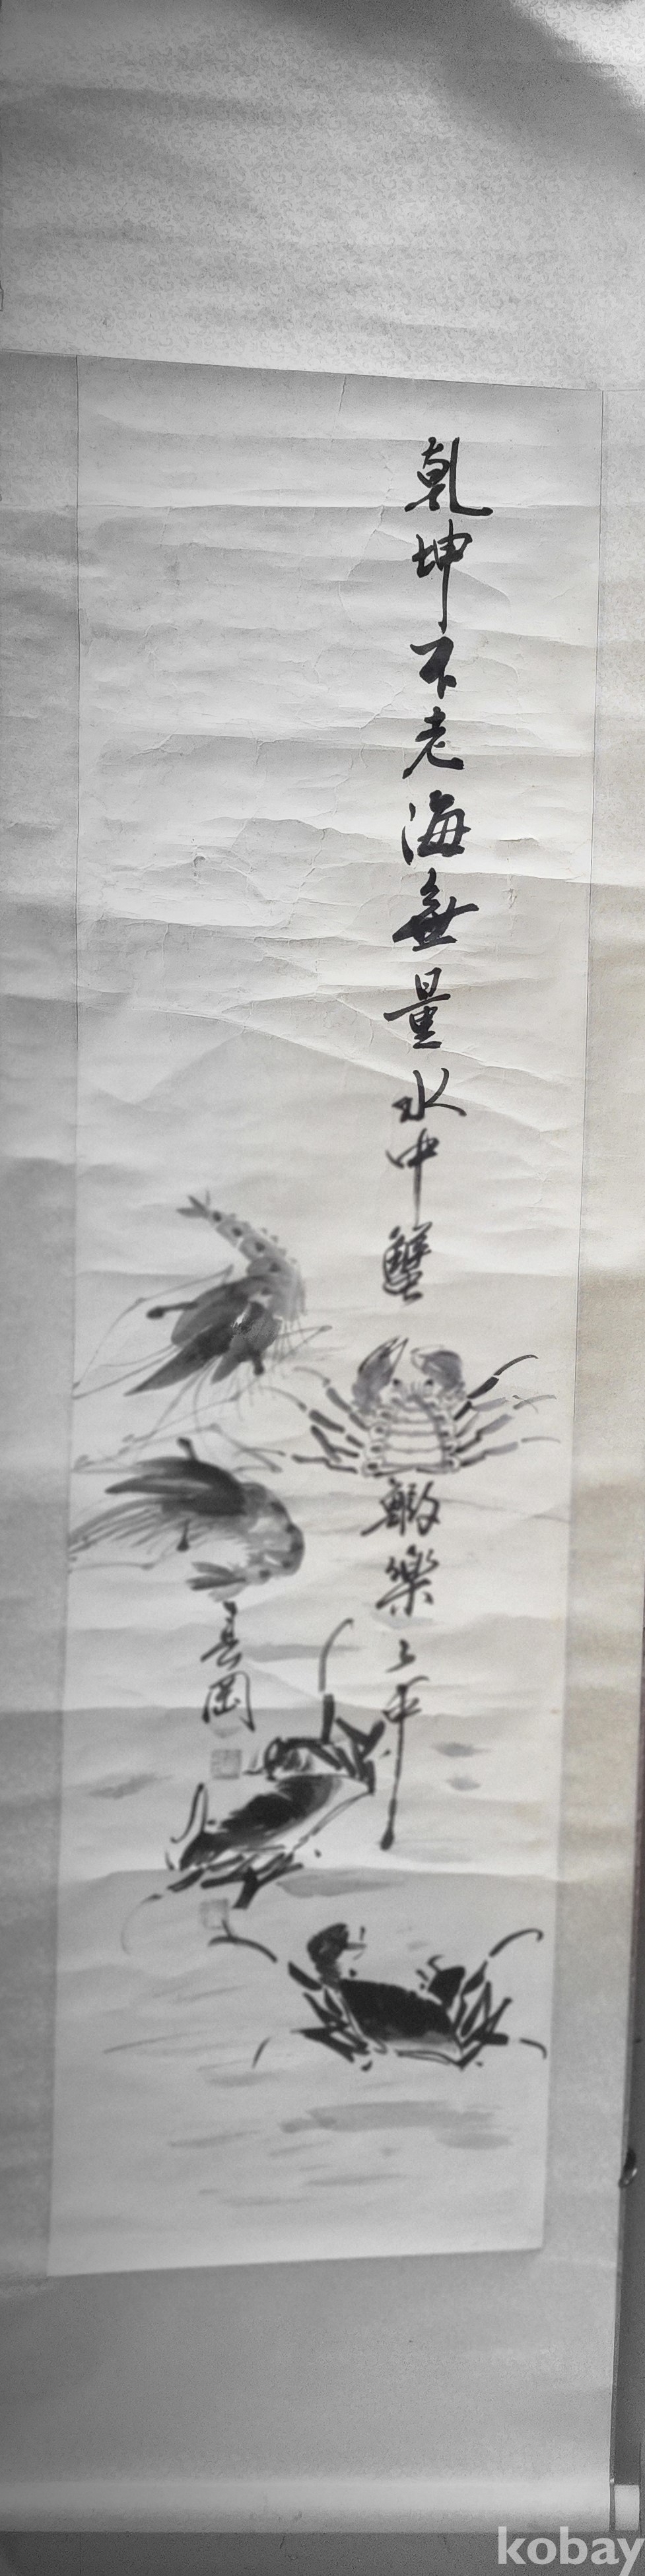 乾坤不老海無量水中蟹鰕樂
岡
kobay